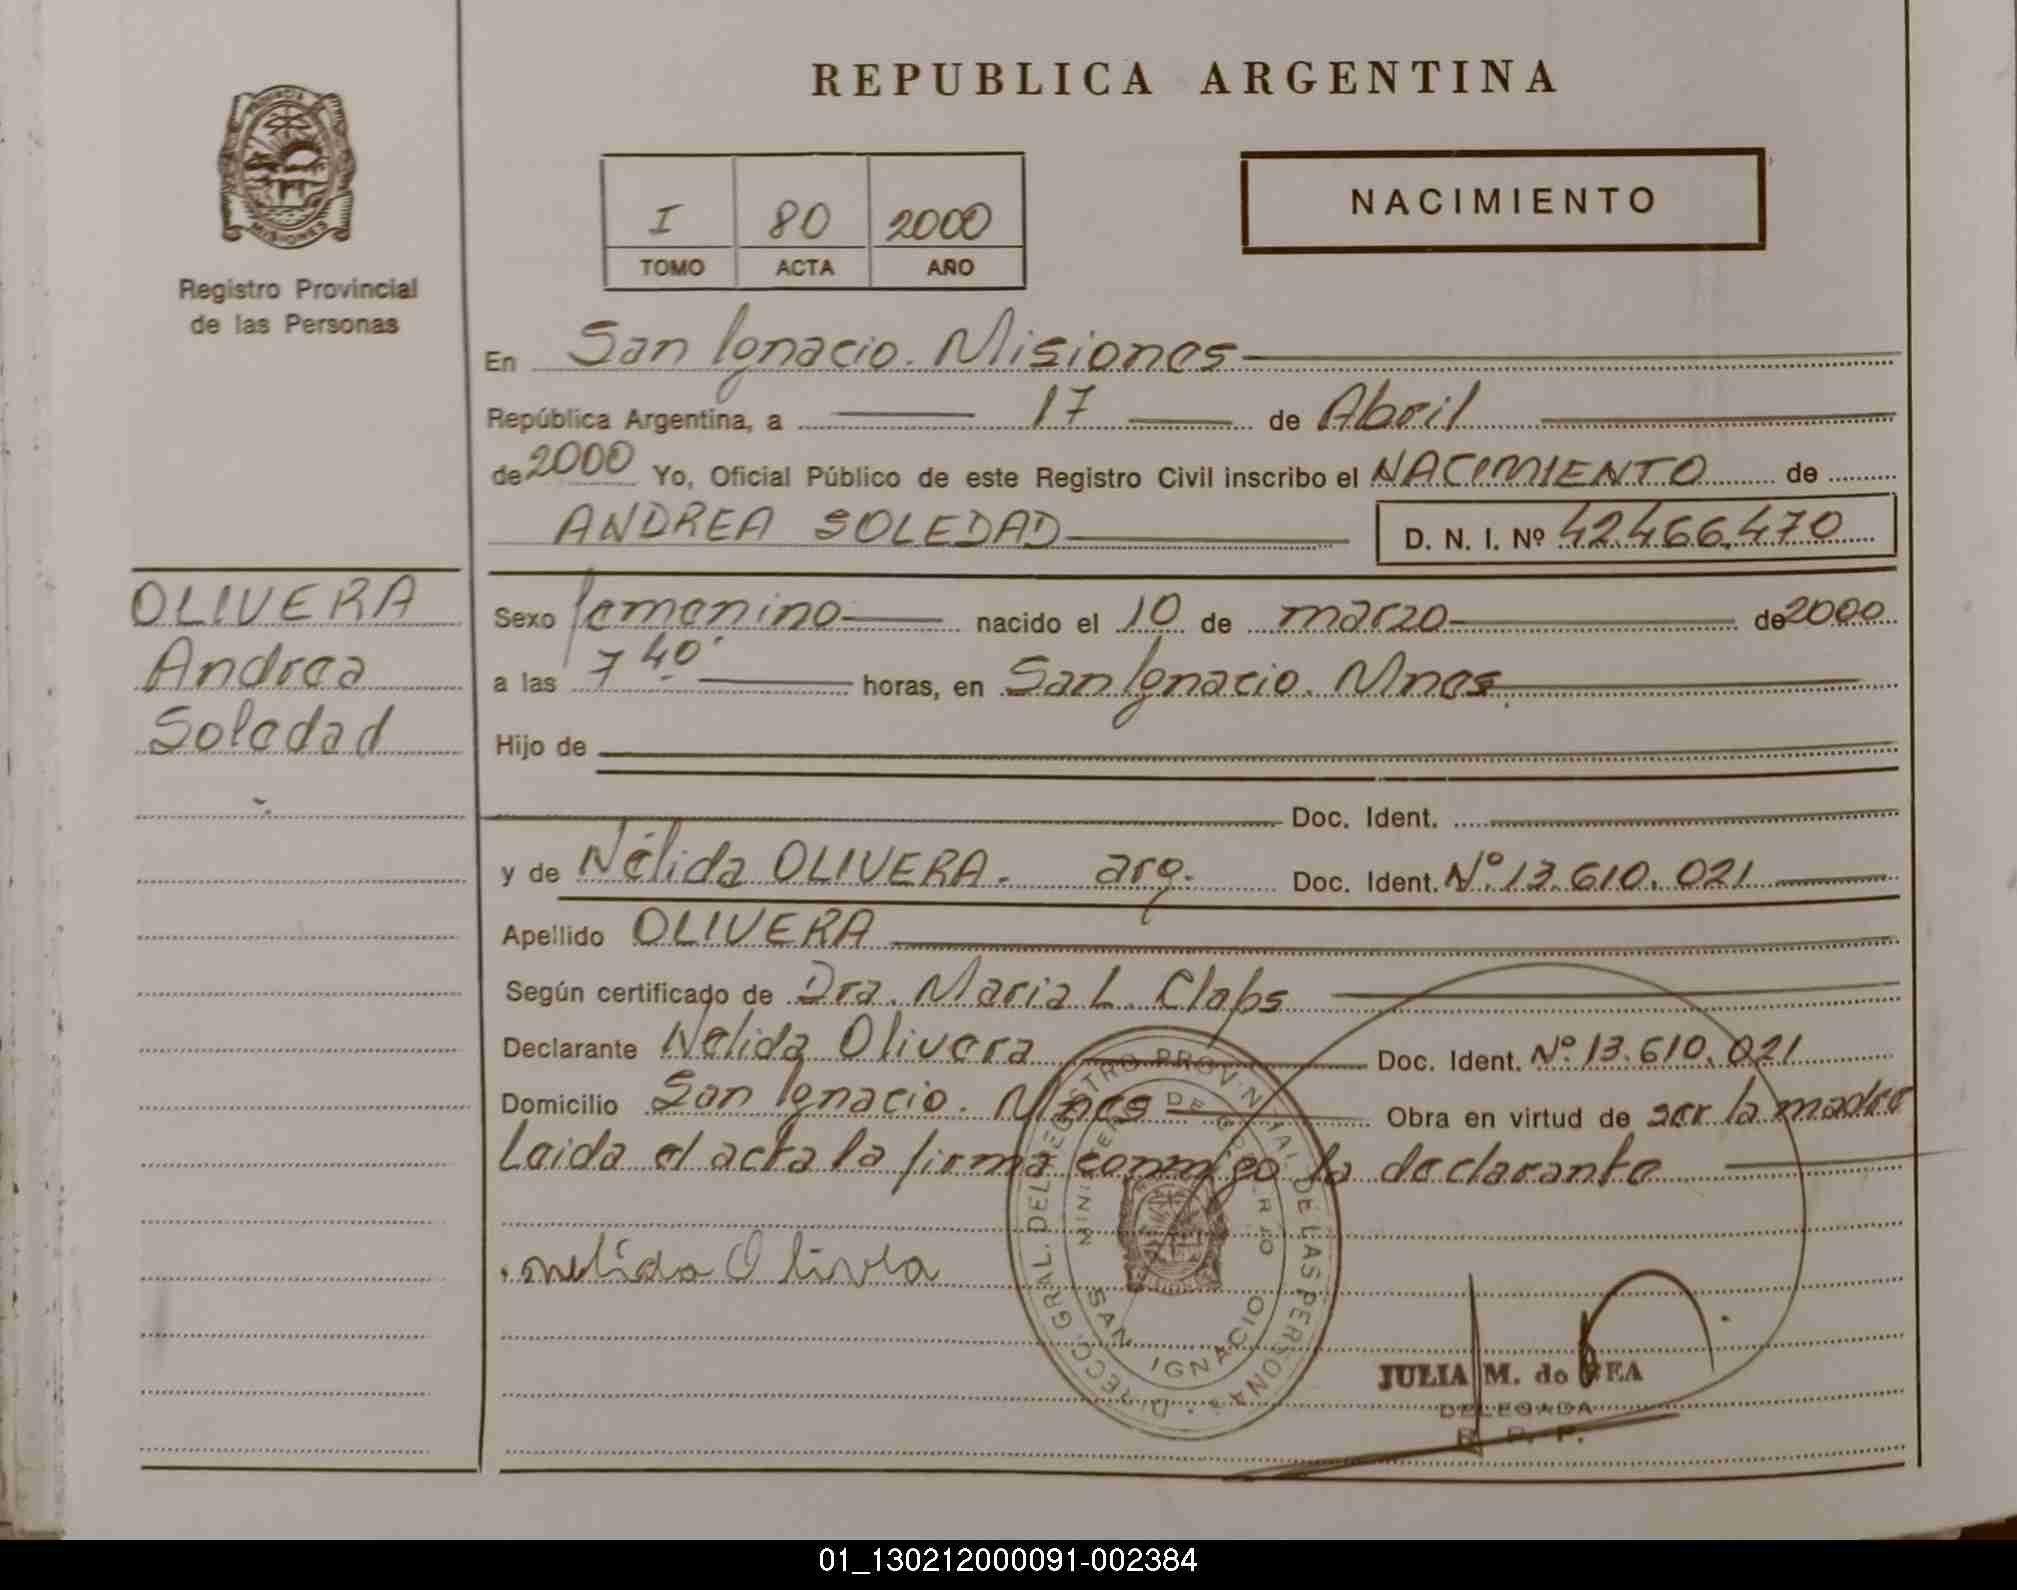 REPUBLICA ARGENTINA
PROVINCIA
MISIONES
Registro Provincial
de las Personas
I 80 2000
TOMO ACTA AÑO
NACIMIENTO
En San Ignacio. Misiones
República Argentina, a 17 de Abril
de 2000 Yo, Oficial Público de este Registro Civil inscribo el NACIMIENTO de
ANDREA SOLEDAD D. N. I. Nº 42.466.470
OLIVERA
Andrea
Soledad
Sexo femenino nacido el 10 de marzo de 2000
a las 7 40' horas, en San Ignacio. Mnes
Hijo de
Doc. Ident.
y de Nélida OLIVERA. arg. Doc. Ident. Nº 13.610.021
Apellido OLIVERA
Según certificado de Dra. Maria L. Claps
Declarante Nélida Olivera Doc. Ident. Nº 13.610.021
Domicilio San Ignacio. Mnes Obra en virtud de ser la madre
Leida el acta la firma conmigo la declarante
nelida Olivera
DIRECC. GRAL. DEL REGISTRO PROVINCIAL DE LAS PERSONAS
MINISTERIO DE GOBIERNO
SAN IGNACIO
JULIA M. do REA
DELEGADA
R. P. P.
01_130212000091-002384